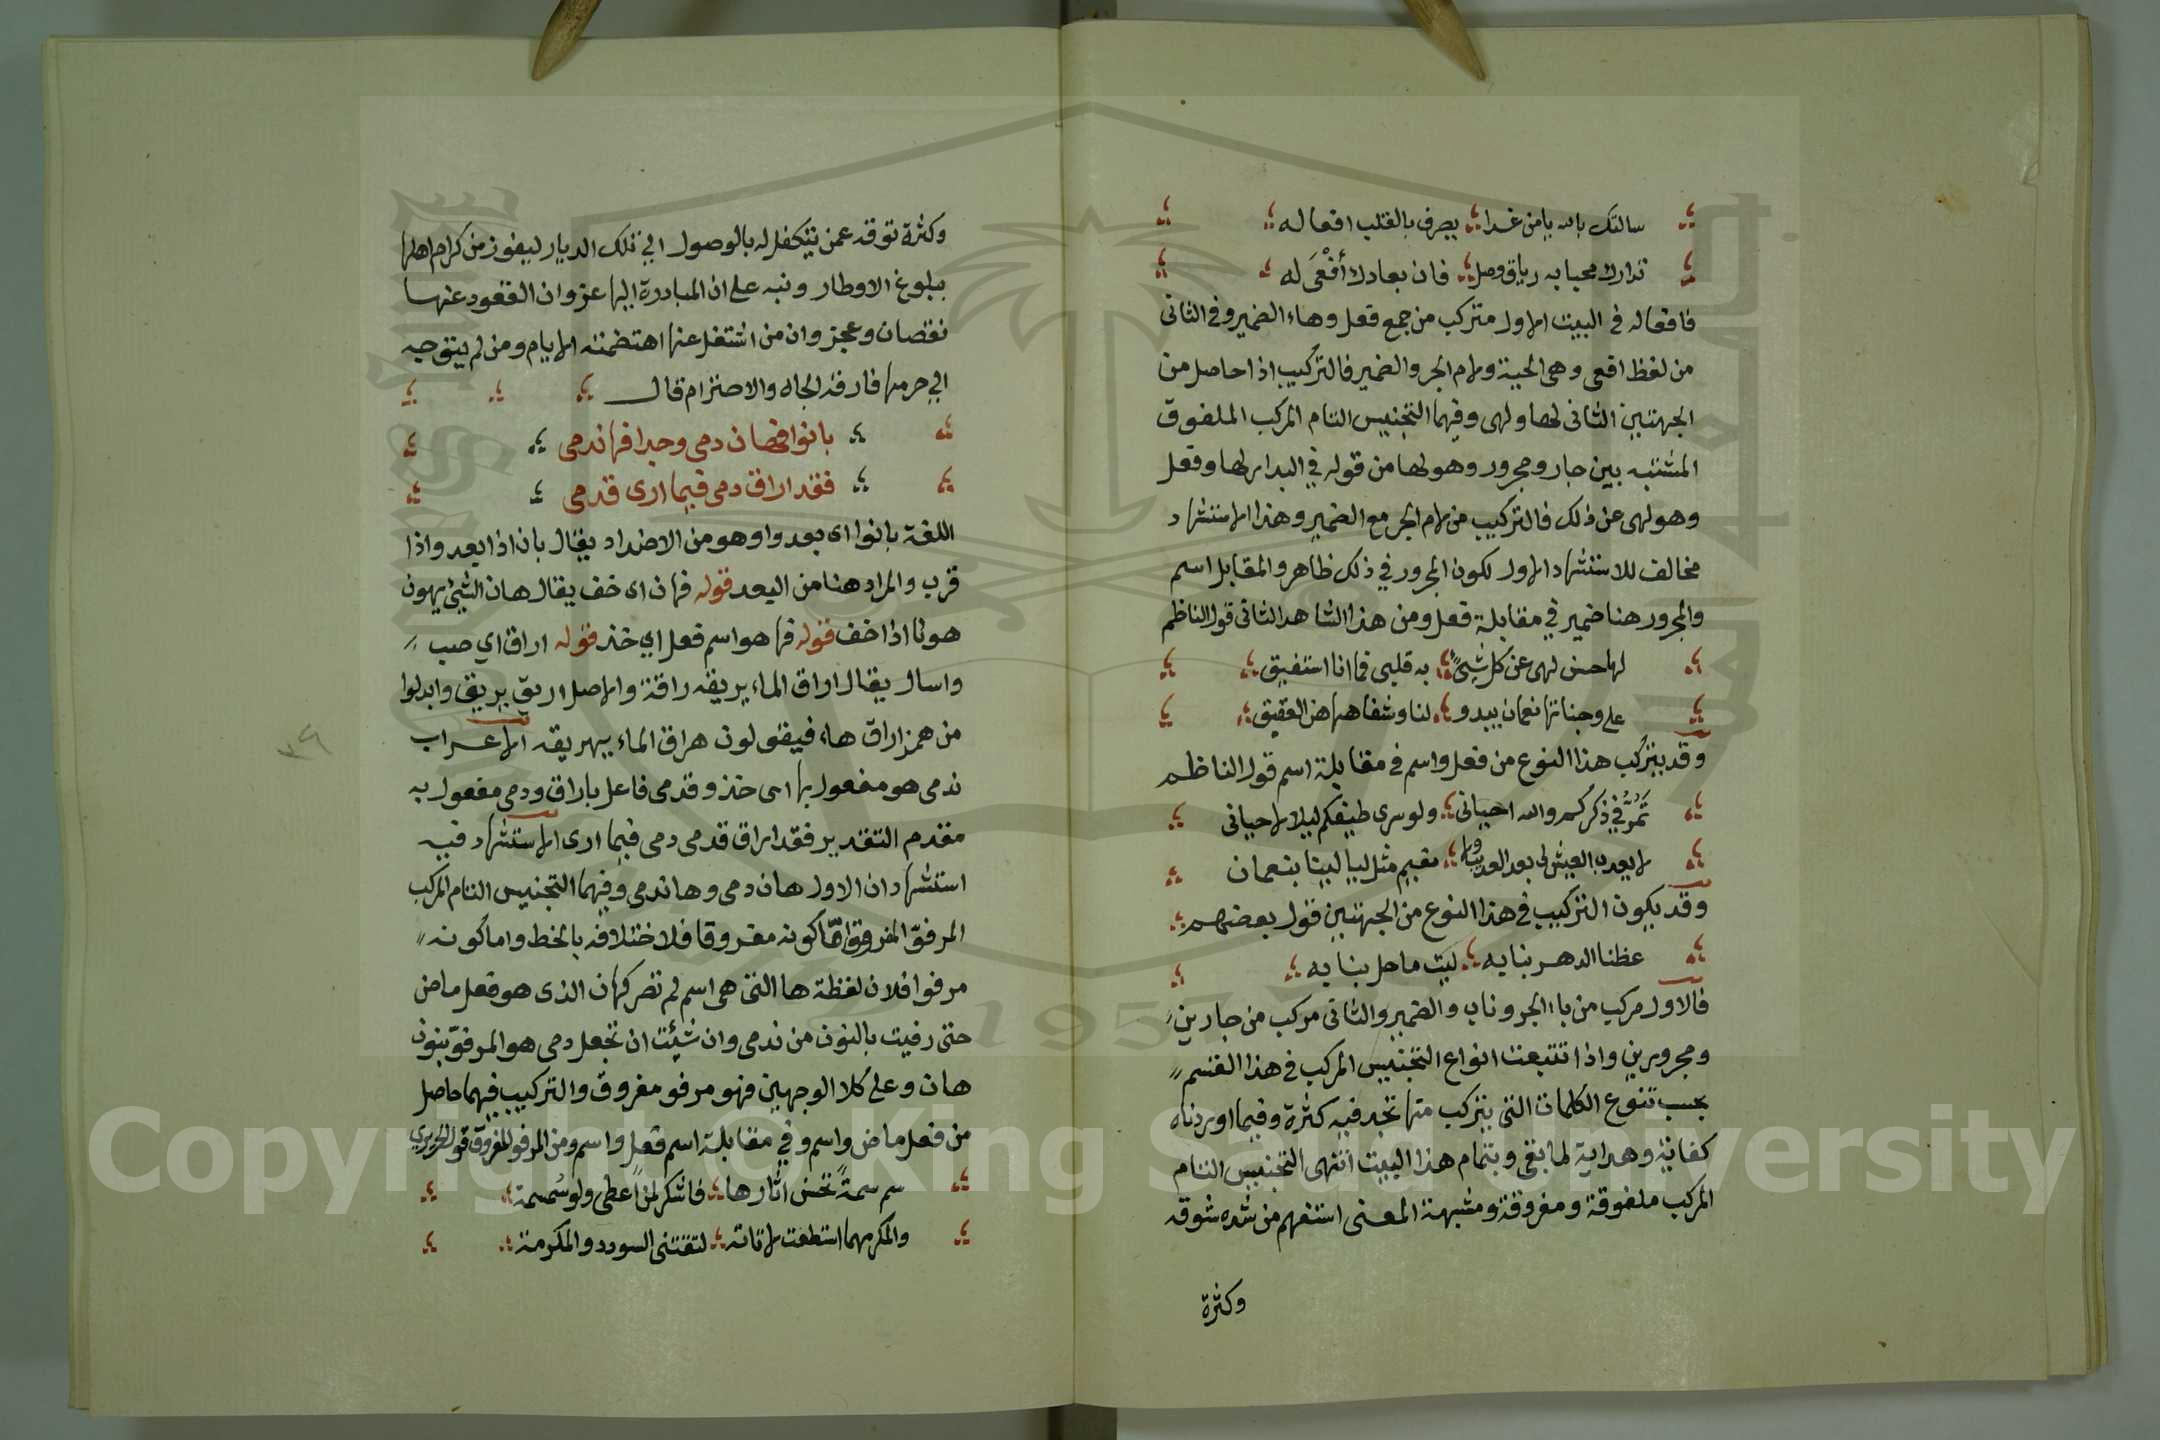 سالتك بالله يا من غدا ؛ يصرف بالقلب افعاله ؛
تدارك محبا به رياق وصل ؛ فان بعادك أفْعَى له ؛
فافعاله في البيت الاول متركب من جمع فعل وهاء الضمير وفي الثاني
من لفظ افعى وهي الحية ولام الجر والضمير فالتركيب اذا حاصل من
الجهتين الثاني لها ولهى وفيهما التجنيس التام المركب الملفوق
المشتبه بين جار ومجرور وهو لها من قوله في البدار لها وفعل
وهو لهى عن ذلك فالتركيب من لام الجر مع الضمير وهذا الاستشهاد
مخالف للاستشهاد الاول لكون المجرور في ذلك ظاهر والمقابل اسم
والمجرور هنا ضمير في مقابلة فعل ومن هذا الشاهد الثاني قول الناظم
لها حسن لهى عن كل شيئ ؛ به قلبي فما انا استفيق ؛
على وجناتها نعمان يبدو ؛ لنا وشفاهها هن العقيق ؛
وقد يتركب هذا النوع من فعل واسم في مقابلة اسم قول الناظم
تَمُرُّ في ذكركم والله احياني ؛ ولو سرى طيفكم ليلا لاحياني
لا يعذب العيش لي بعد العذيب ولا ؛ نعيم مثل ليالينا بنعمان
وقد يكون التركيب في هذا النوع من الجهتين قول بعضهم ؛
عظنا الدهر بنابه ؛ ليت ما حل بنا به ؛
فالاول مركب من باء الجر وناب والضمير والثاني مركب من جارين
ومجرورين واذا تتبعت انواع التجنيس المركب في هذا القسم
بحسب تنوع الكلمات التي يتركب منها تجد فيه كثرة وفيما اوردناه
كفاية وهداية لما بقي وبتمام هذا البيت انتهى التجنيس التام
المركب ملفوقة ومفروقة ومشبهة المعنى استفهم من شده شوقه
وكثرة
وكثرة توقه عمن يتكفل له بالوصول الي تلك الديار ليفوز من كرام اهلها
ببلوغ الاوطار ونبه على ان المبادرة اليها عز وان القعود عنها
نقصان وعجز وان من اشتغل عنها اهتضمته الايام ومن لم يتوجه
الي حرمها فارقه الجاه والاحترام قال
بانوا فهان دمي وجدا فها ندمي
فقد اراق دمي فيما ارى قدمي
اللغة بانوا اى بعدوا وهو من الاضداد يقال بان اذا بعد واذا
قرب والمراد هنا من البعد قوله فهان اى خف يقال هان الشئ يهون
هونا اذا خف قوله فها هو اسم فعل اي خذ قوله اراق اي صب
واسال يقال اراق الماء يريقه راقة والاصل اريق يريق وابدلوا
من همز اراق هاء فيقولون هراق الماء يهريقه الاعراب
ندمي هو مفعول بها اى خذ وقدمي فاعل باراق ودمي مفعول به
مقدم التقدير فقد اراق قدمي دمي فيما ارى الاستشهاد فيه
استشهادان الاول هان دمي وها ندمي وفيهما التجنيس التام المركب
المرفوّ المفروق امّا كونه مفروقا فلاختلافه بالخط واما كونه
مرفوا فلان لفظة ها التي هي اسم لم تصر كهان الذى هو فعل ماض
حتى رفيت بالنون من ندمي وان شئت ان تجعل دمي هو المرفوّ بنون
هان وعلى كلا الوجهين فهو مرفو مفروق والتركيب فيهما حاصل
من فعل ماض واسم وفي مقابلة اسم فعل واسم ومن المرفو المفروق قول الحريري
سم سمةً تحسن اثارها ؛ فاشكر لمن اعطى ولو سمسمة ؛
والمكر مهما استطعت لا تاته ؛ لتقتني السودد والمكرمة ؛
Copyright © King Saud University
1957